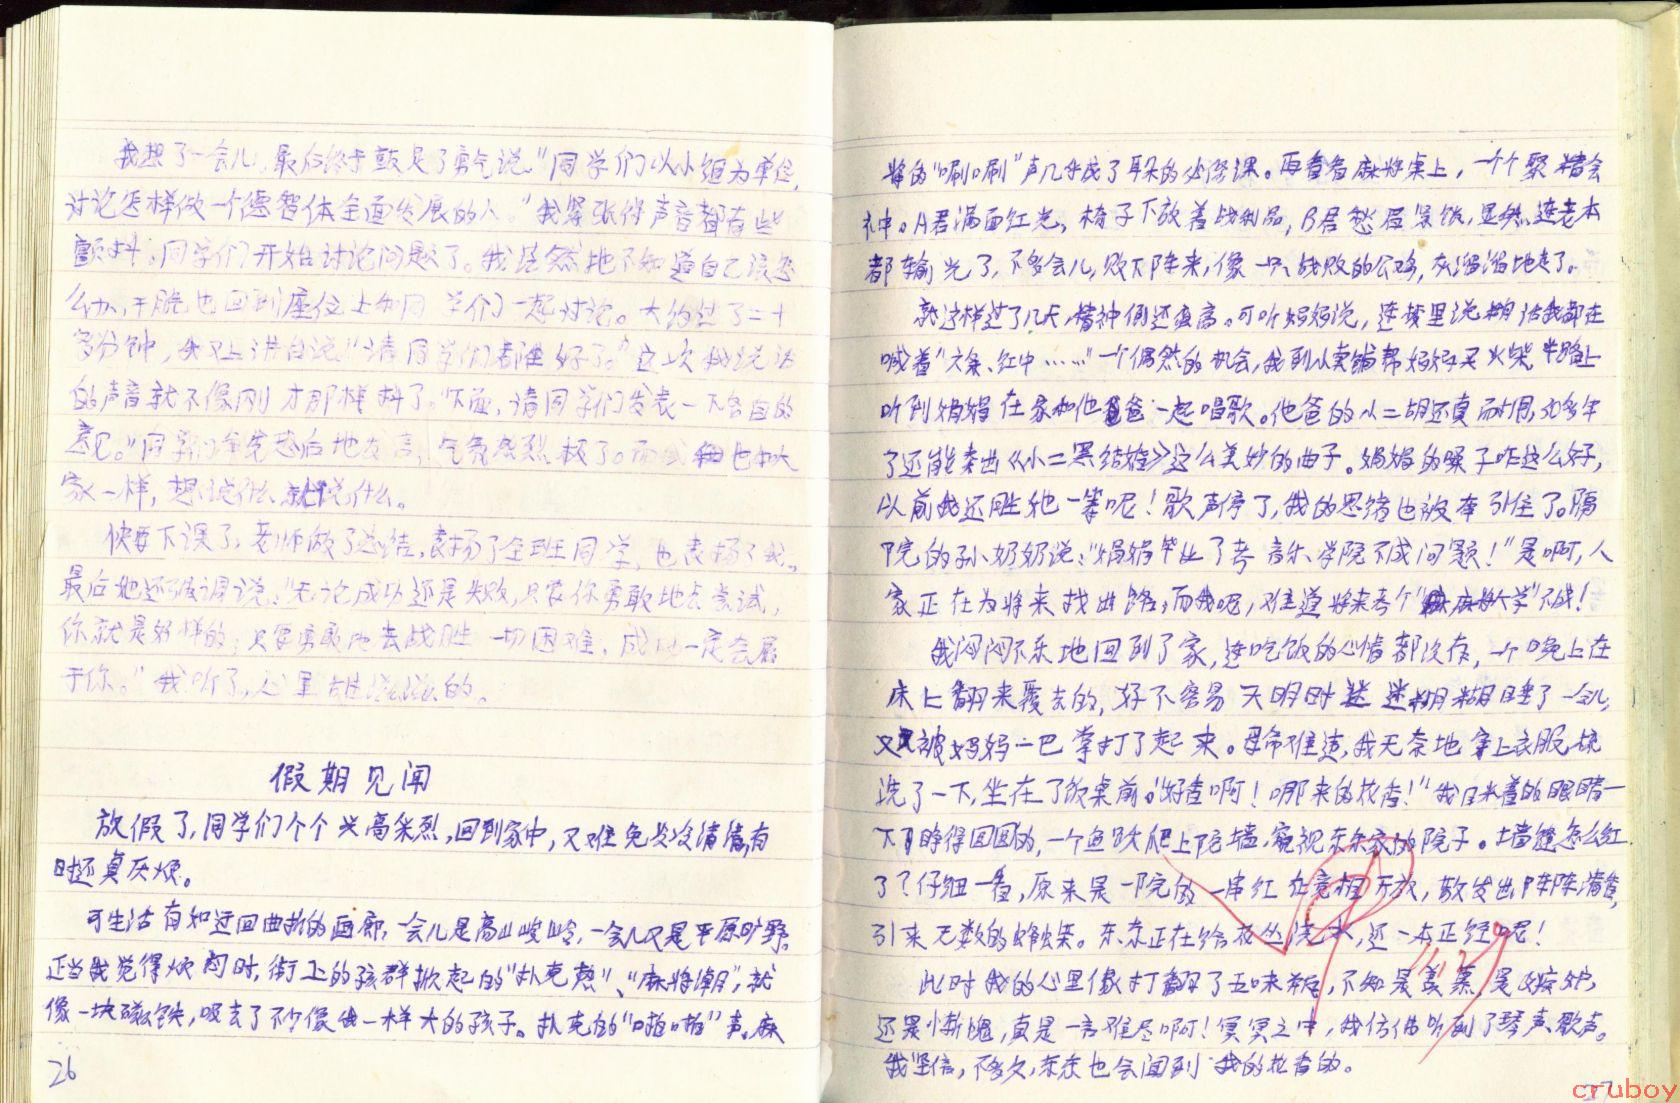 我想了一会儿,最后终于鼓足了勇气说,"同学们以小组为单位,
讨论怎样做一个德智体全面发展的人。"我紧张得声音都有些
颤抖,同学们开始讨论问题了。我茫然地不知道自己该怎
么办,干脆也回到座位上和同学们一起讨论。大约过了二十
多分钟,我又上讲台说,"请同学们都准备好了。"这次我说话
的声音就不像刚才那样抖了。"下面,请同学们发表一下各自的
意见。"同学们争先恐后地发言,气氛热烈极了。而我也和大
家一样,想说什么就说什么。
快要下课了,老师做了总结,表扬了全班同学,也表扬了我。
最后她还强调说:"无论成功还是失败,只要你勇敢地去尝试,
你就是好样的;只要勇敢地去战胜一切困难,成功一定会属
于你。"我听了,心里甜滋滋的。
假期见闻
放假了,同学们个个兴高采烈,回到家中,又难免冷冷清清,有
时还真厌烦。
可生活有如迂回曲折的画廊,一会儿是高山峻岭,一会儿又是平原旷野。
正当我觉得烦闷时,街上的孩群掀起的"扑克热"、"麻将潮",就
像一块磁铁,吸去了不少像我一样大的孩子。扑克的"啪啪"声、麻
26
将的"唰唰"声几乎成了耳朵的必修课。再看看麻将桌上,一个个聚精会
神。A君满面红光,椅子下放着战利品,B君愁眉紧锁,显然,连老本
都输光了,不多会儿,败下阵来,像一只战败的公鸡,灰溜溜地走了。
就这样过了几天,精神倒还蛮高。可听妈妈说,连梦里说胡话我都在
喊着"六条、红中……"一个偶然的机会,我到小卖铺帮妈妈买火柴,半路上
听到娟娟在家和他爸爸一起唱歌。他爸的小二胡还真耐用,20多年
了还能奏出《小二黑结婚》这么美妙的曲子。娟娟的嗓子咋这么好,
以前我还胜他一筹呢!歌声停了,我的思绪也被牵引住了。隔
院的孙奶奶说:"娟娟毕业了考音乐学院不成问题!"是啊,人
家正在为将来找出路,而我呢,难道将来考个"麻将大学"不成!
我闷闷不乐地回到了家,连吃饭的心情都没有,一个晚上在
床上翻来覆去的,好不容易天明时迷迷糊糊睡了一会儿,
又被妈妈一巴掌打了起来。母命难违,我无奈地穿上衣服,梳
洗了一下,坐在了饭桌前。"好香啊!哪来的花香!"我眯着的眼睛一
下睁得圆圆的,一个鱼跃爬上院墙,窥视东东家的院子。墙缝怎么红
了?仔细一看,原来是一院的一串红在竞相开放,散发出阵阵清香,
引来无数的蜂蝶。东东正在给花丛浇水,还一本正经呢!
此时我的心里像打翻了五味瓶,不知是羡慕,是嫉妒,
还是惭愧,真是一言难尽啊!冥冥之中,我仿佛听到了琴声、歌声。
我坚信,不多久,东东也会闻到我的花香的。
27
cruboy